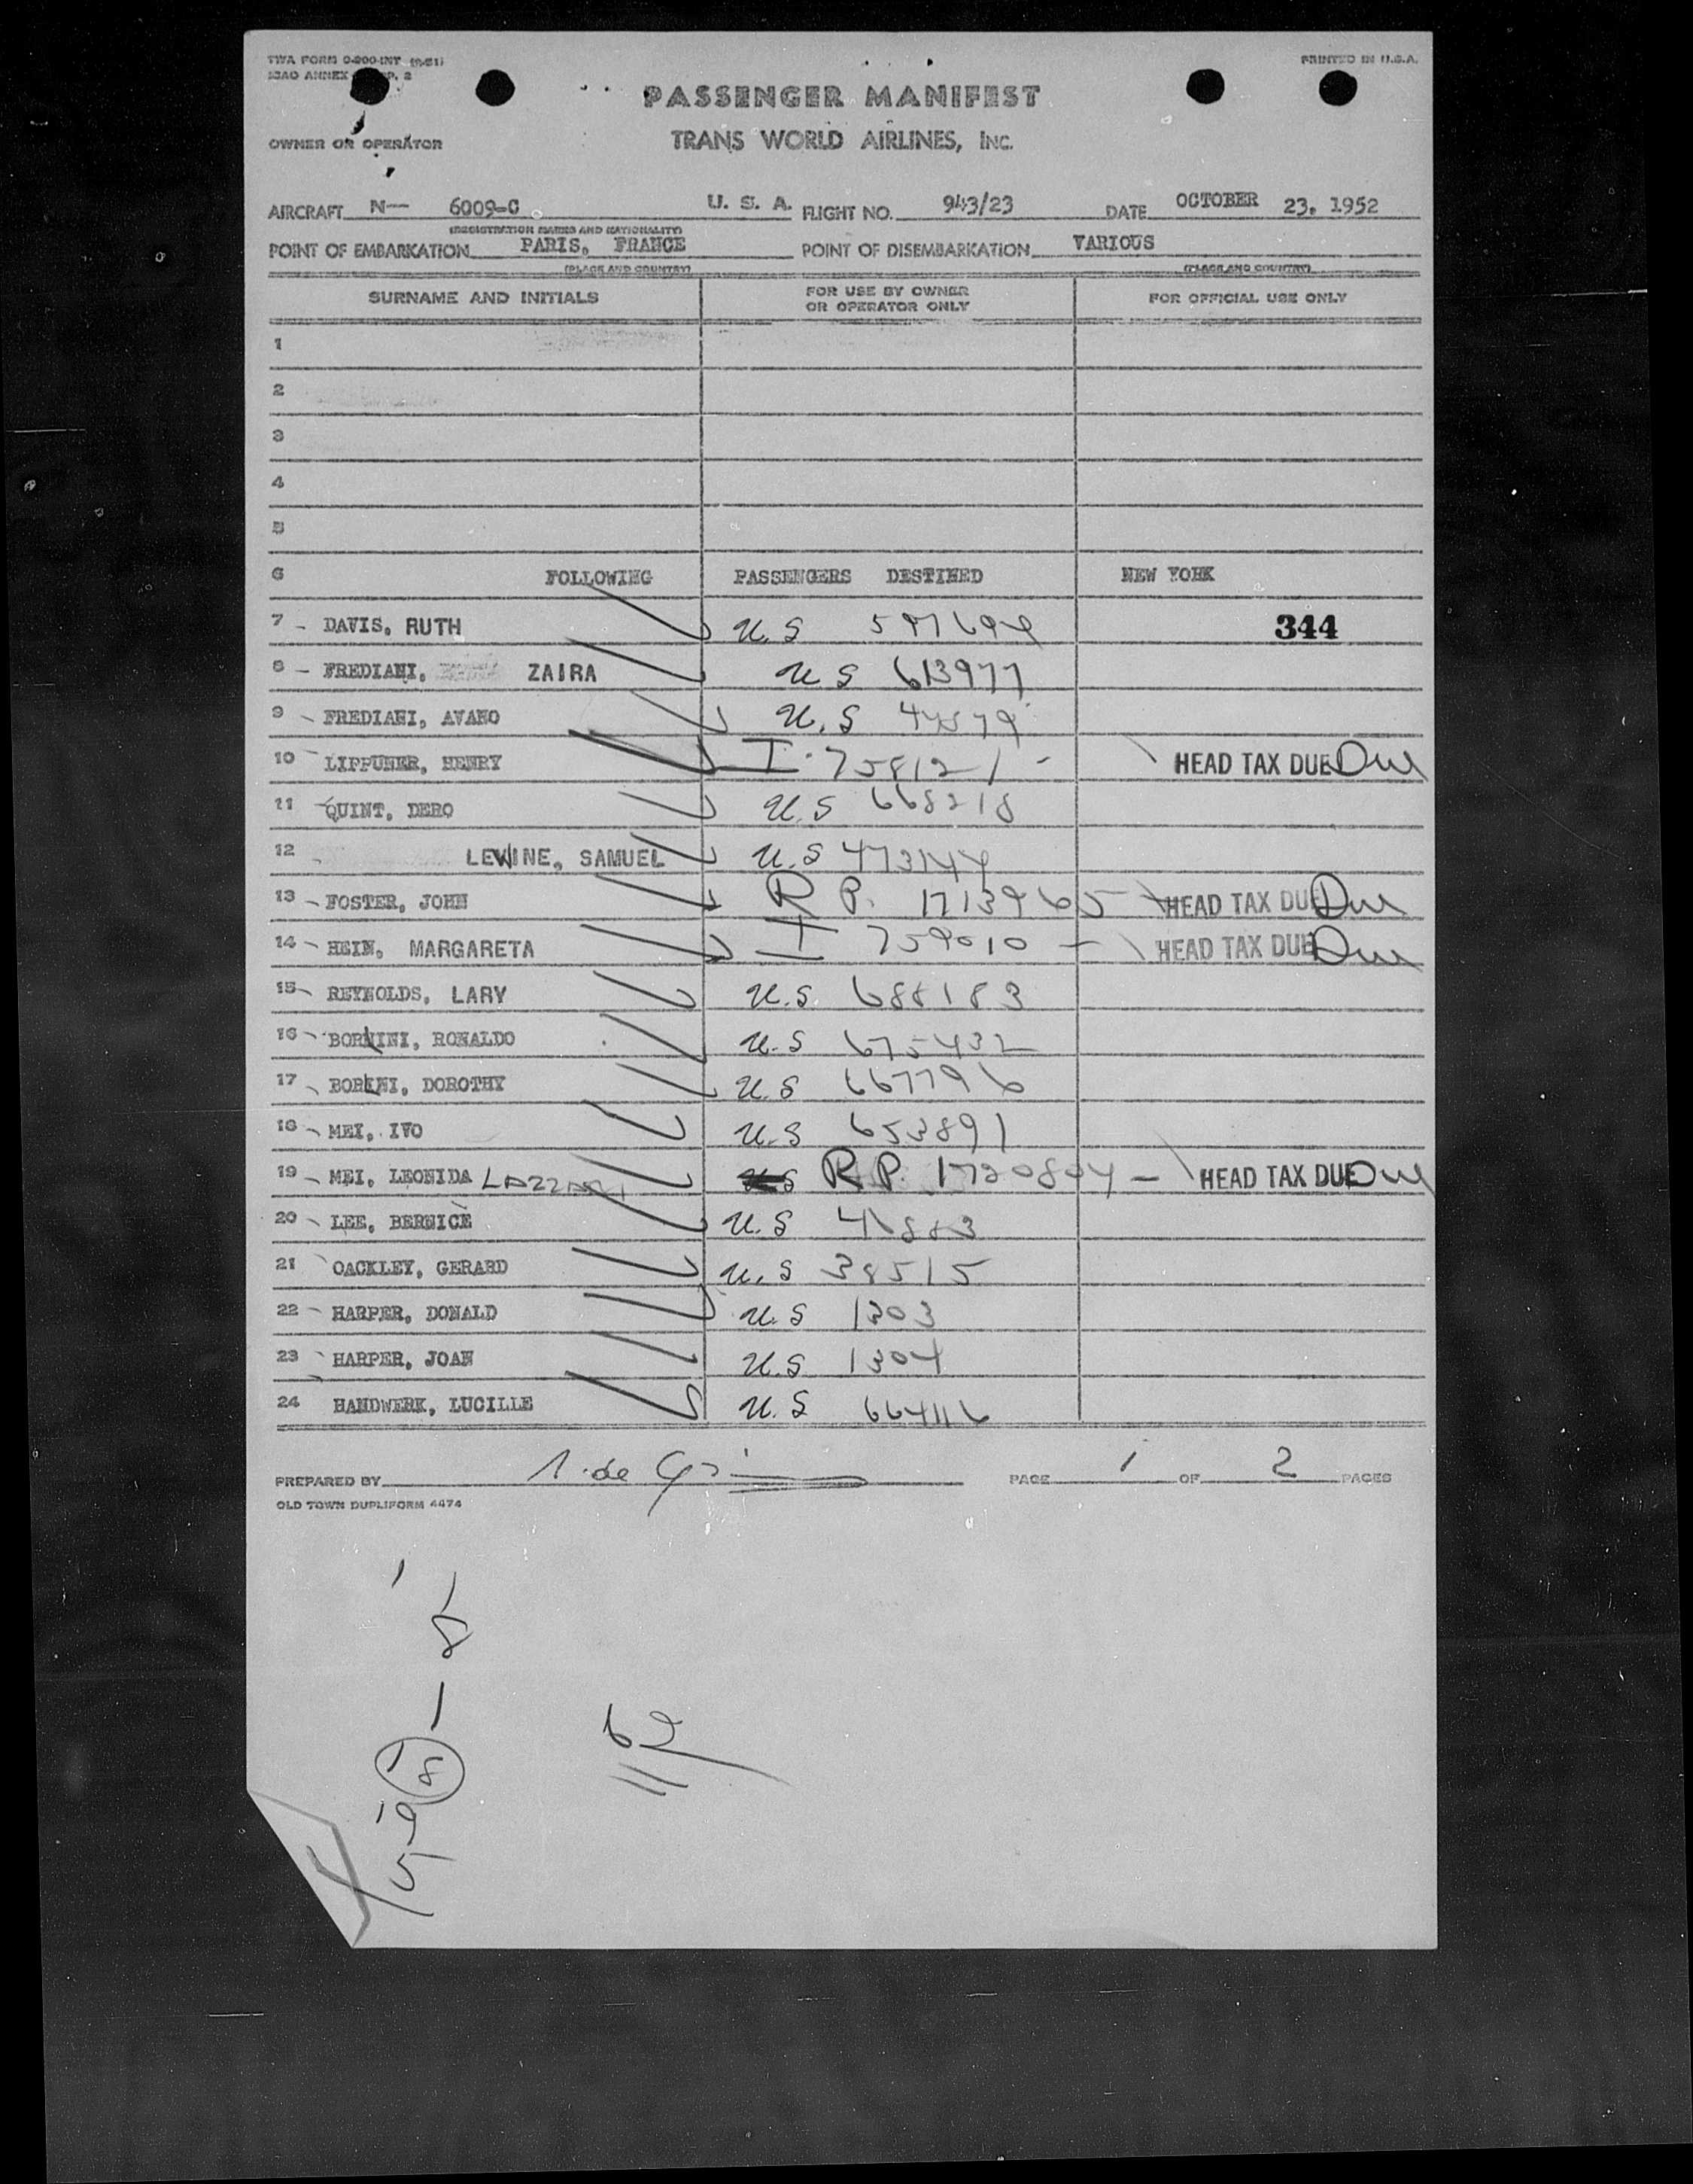 TWA FORM 0-200-INT (9-51)
PRINTED IN U.S.A.
ICAO ANNEX P. 2
PASSENGER MANIFEST
OWNER OR OPERATOR
TRANS WORLD AIRLINES, INC.
AIRCRAFT N-- 6009-C U. S. A. FLIGHT NO. 943/23 DATE OCTOBER 23, 1952
(REGISTRATION MARKS AND NATIONALITY)
POINT OF EMBARKATION PARIS, FRANCE POINT OF DISEMBARKATION VARIOUS
(PLACE AND COUNTRY) (PLACE AND COUNTRY)
SURNAME AND INITIALS FOR USE BY OWNER OR OPERATOR ONLY FOR OFFICIAL USE ONLY
1
2
3
4
5
6 FOLLOWING PASSENGERS DESTINED NEW YORK
7 - DAVIS, RUTH U.S 344
8 - FREDIANI, ZAIRA U S 613977
9 - FREDIANI, AVANO U.S
10 - LIPPUNER, HENRY I. 758121 - HEAD TAX DUE Due
11 - QUINT, DERO U.S 668218
12 LEWINE, SAMUEL U.S 473144
13 - FOSTER, JOHN R P. 1713965 HEAD TAX DUE Due
14 - HEIN, MARGARETA I 759010 - HEAD TAX DUE Due
15 - REYNOLDS, LARY U.S. 688183
16 - BORNINI, RONALDO U.S 675432
17 - BORINI, DOROTHY U.S 667796
18 - MEI, IVO U.S 653891
19 - MEI, LEONIDA LAZZARI R P. 1720804 - HEAD TAX DUE Due
20 - LEE, BERNICE U.S 41883
21 OACKLEY, GERARD U.S 38515
22 - HARPER, DONALD U.S 1303
23 HARPER, JOAN U.S 1304
24 HANDWERK, LUCILLE U.S 664116
PREPARED BY PAGE 1 OF 2 PAGES
OLD TOWN DUPLIFORM 4474